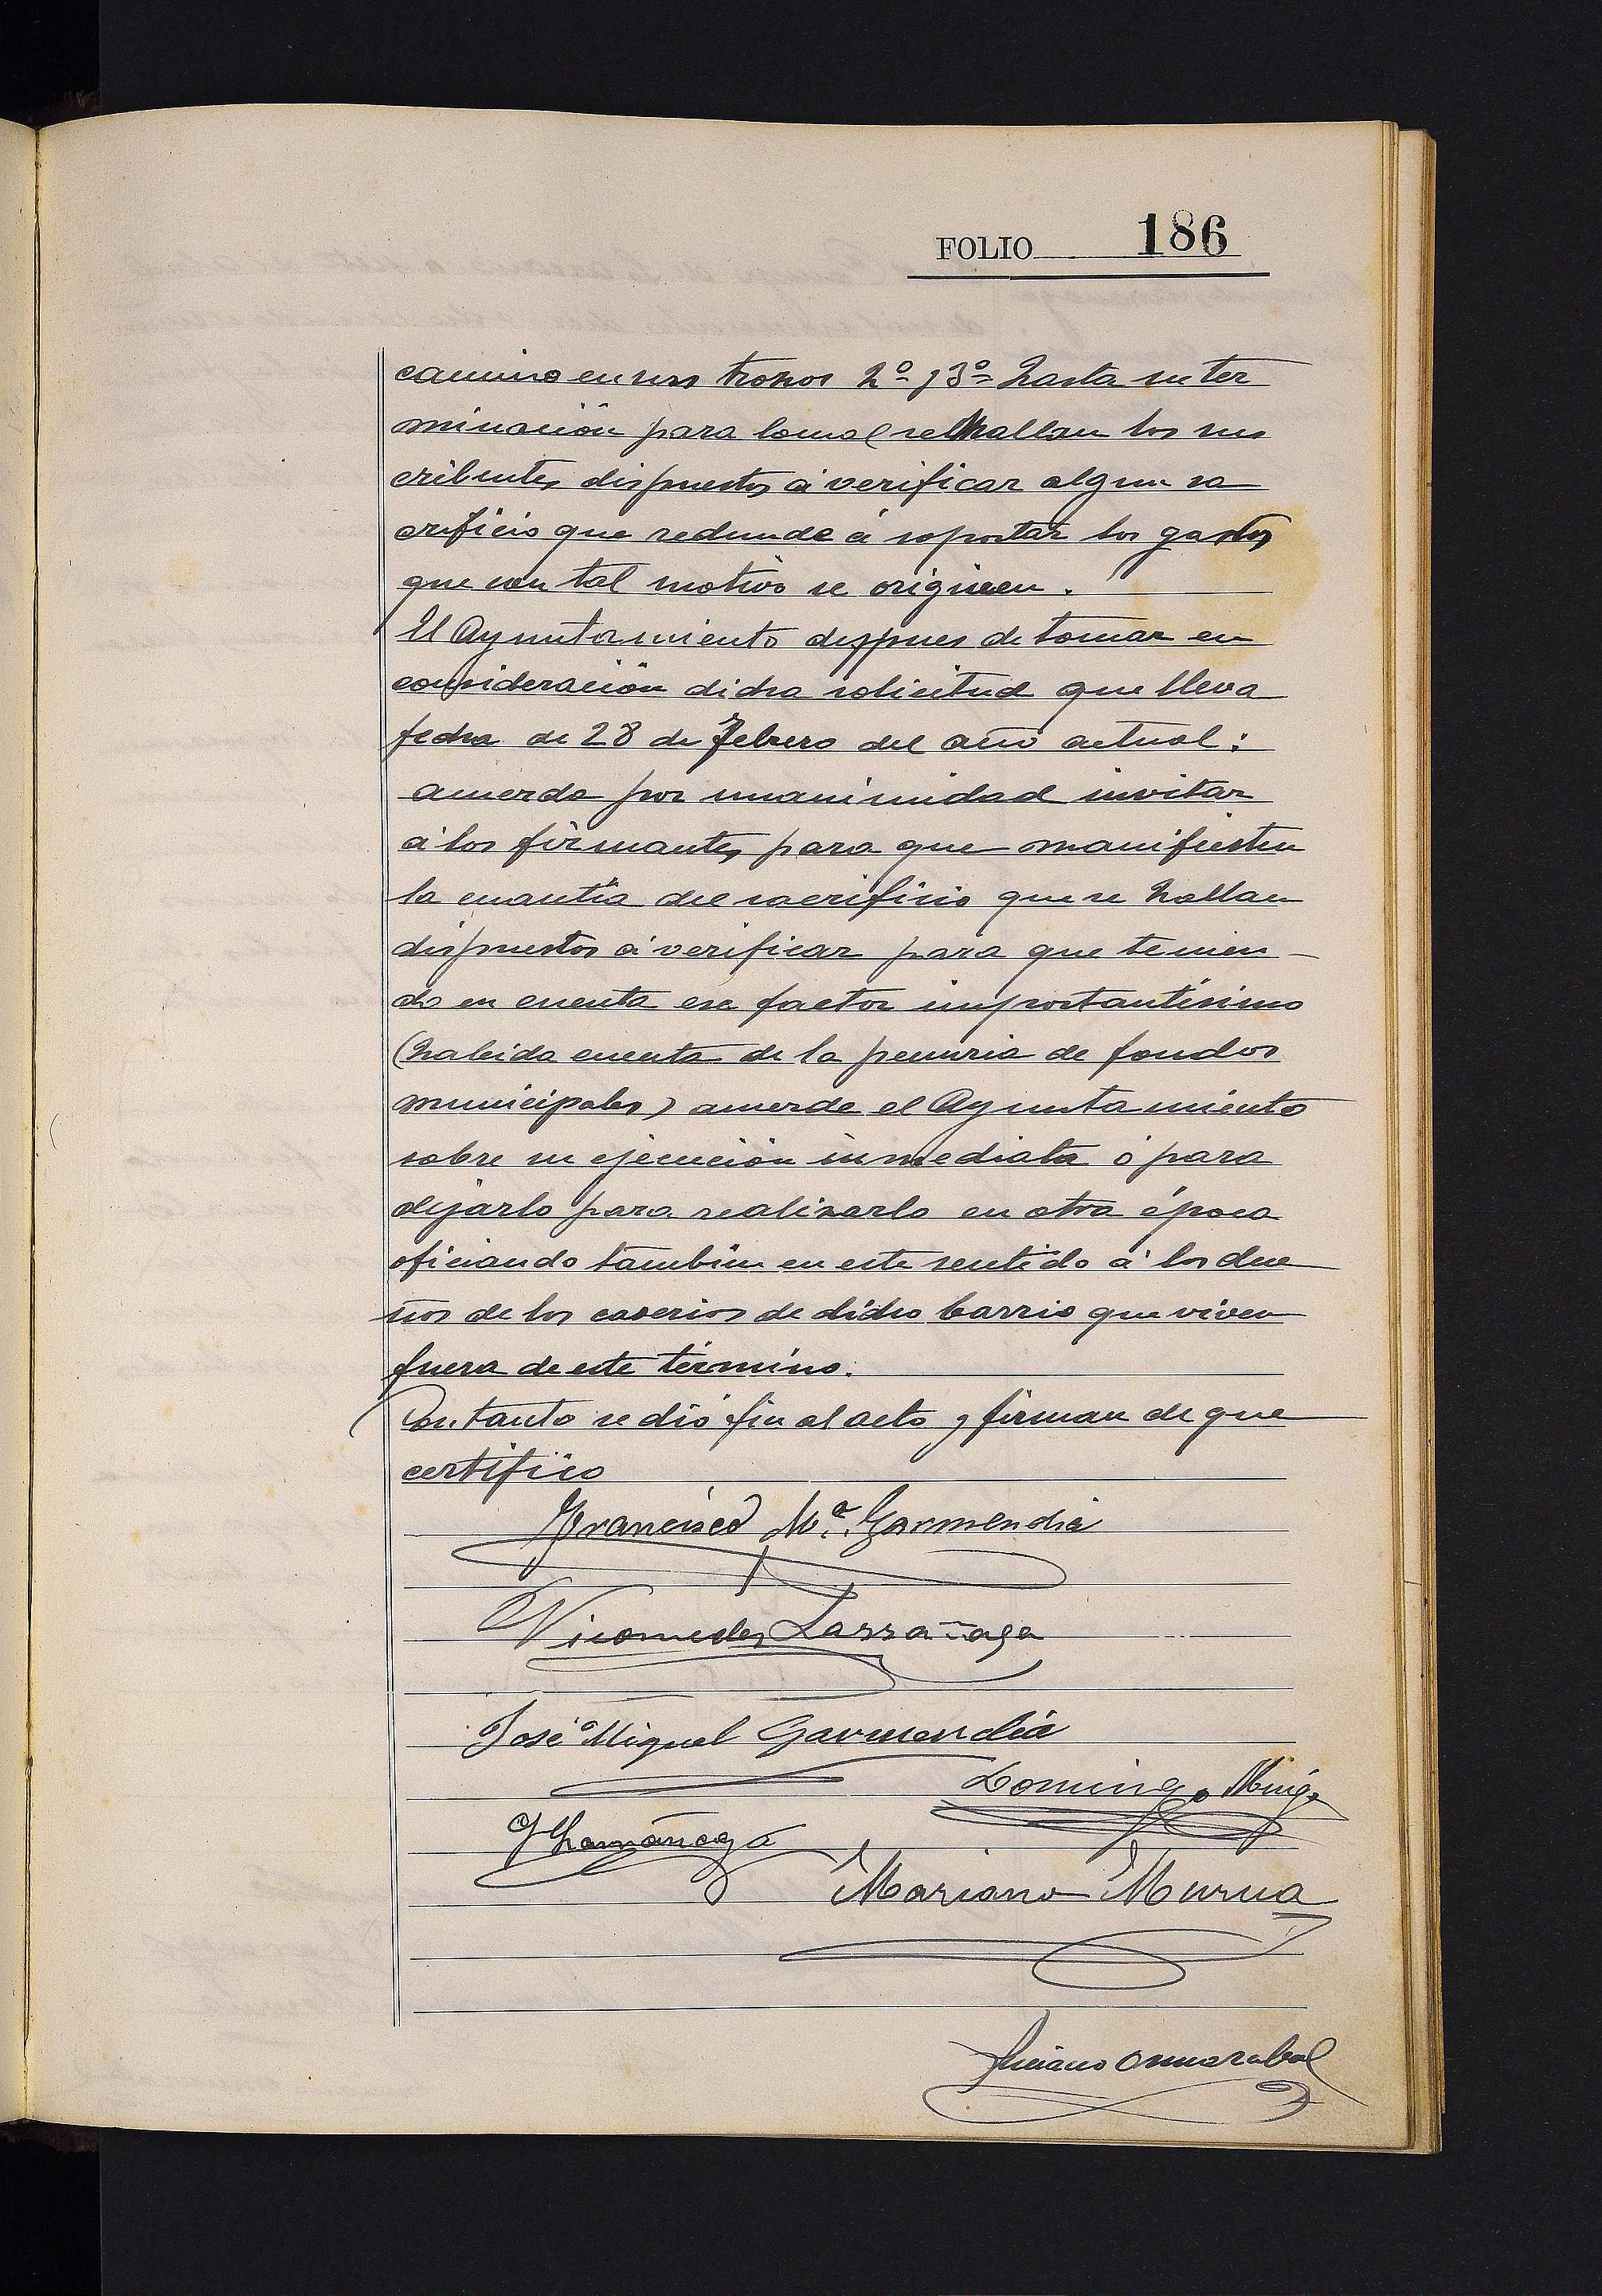 FOLIO 186
camino en sus trozos 2º y 3º hasta su ter
minación para lo cual se hallan los sus
cribentes dispuestos á verificar algun sa
crificio que redunde á soportar los gastos
que con tal motivo se originen.
El Ayuntamiento despues de tomar en
consideración dicha solicitud que lleva
fecha de 28 de Febrero del año actual:
acuerda por unanimidad invitar
á los firmantes para que manifiesten
la cuantía del sacrificio que se hallan
dispuestos á verificar para que tenien-
do en cuenta ese factor importantísimo
(habida cuenta de la penuria de fondos
municipales) acuerde el Ayuntamiento
sobre su ejecución inmediata ó para
dejarlo para realizarlo en otra época
oficiando tambien en este sentido á los due
ños de los caserios de dicho barrio que viven
fuera de este término.
Con tanto se dió fin al acto y firman de que
certifico
Francisco Mª. Garmendia
Nicomedes Larrañaga
José Miguel Garmendia
Domingo
J Larrañaga
Mariano Murua